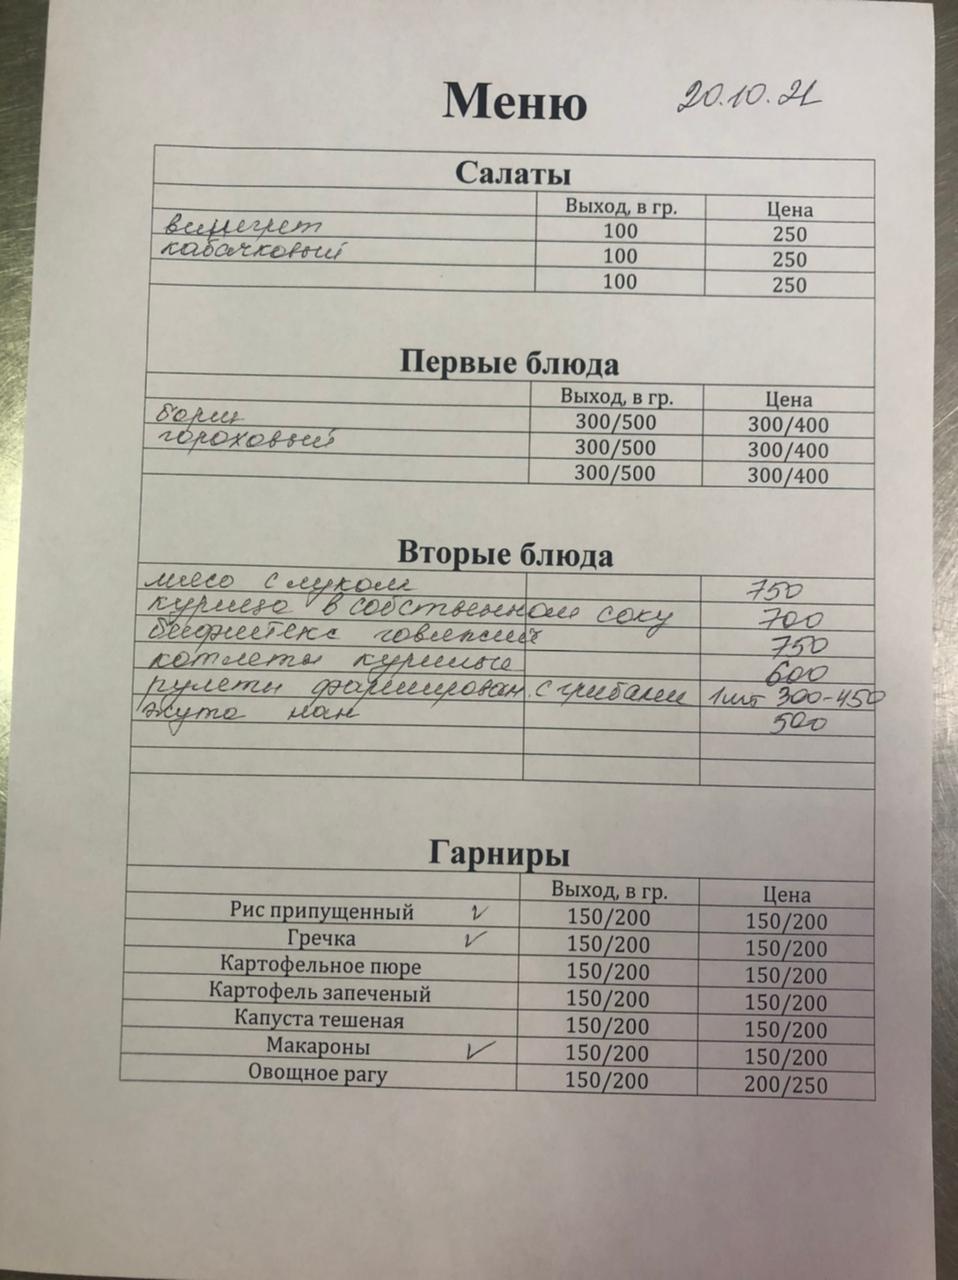 Меню 20.10.21
Салаты
Выход, в гр. Цена
винегрет 100 250
кабачковый 100 250
100 250
Первые блюда
Выход, в гр. Цена
борщ 300/500 300/400
гороховый 300/500 300/400
300/500 300/400
Вторые блюда
мясо с луком 750
курица в собственном соку 700
бифштекс говяжий 750
котлеты куриные 600
рулеты фарширован. с грибами 1шт 300-450
жута нан 500
Гарниры
Выход, в гр. Цена
Рис припущенный ✓ 150/200 150/200
Гречка ✓ 150/200 150/200
Картофельное пюре 150/200 150/200
Картофель запеченый 150/200 150/200
Капуста тешеная 150/200 150/200
Макароны ✓ 150/200 150/200
Овощное рагу 150/200 200/250